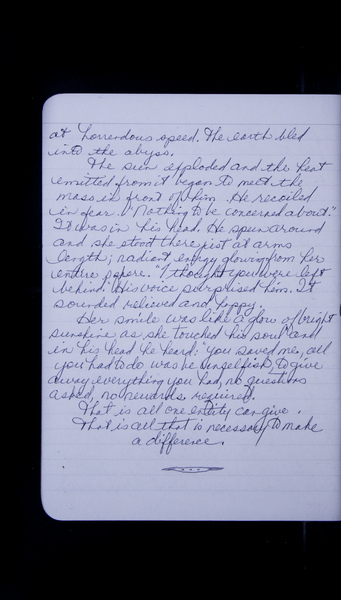 at horrendous speed. The earth bled
into the abyss.
The sun exploded and the heat
emitted from it began to melt the
mass in front of him. He recoiled
in fear. "Nothing to be concerned about."
It was in his head. He spun around
and she stood there just at arms
length; radiant energy glowing from her
entire sphere. "I thought you were left
behind." His voice surprised him. It
sounded relieved and happy.
Her smile was like a glow of bright
sunshine as she touched his soul and
in his head he heard: "you saved me, all
you had to do was be unselfish, to give
away everything you had, no questions
asked, no rewards required.
That is all one entity can give.
That is all that is necessary to make
a difference.